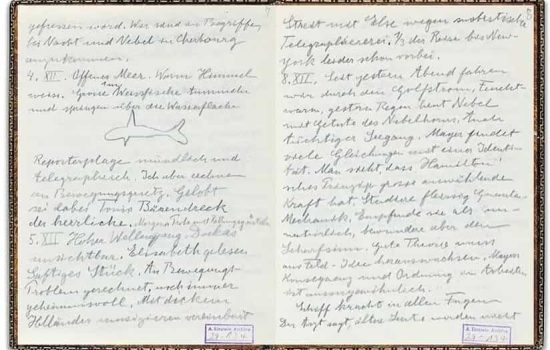 gefressen ward. War sind im Begriffe
bei Nacht und Nebel in Cherbourg
anzukommen.
4. XII. Offenes Meer. Warm Himmel
weiss. Grosse Weissfische tummeln
und springen über die Wasserfläche
Reporterplage mündlich und
telegraphisch. Ich aber rechnen
an Bewegungsgesetz. Gelobt
sei dabei Tonis Bärendreck
der herrliche.
5. XII Hoher Wellengang. Duckas
unsichtbar. Elisabeth gelesen
Saftiges Stück. An Bewegungs-
Problem gerechnet, noch immer
geheimnisvoll. Mit dickem
Holländer musizieren vereinbart
Streit mit Else wegen
Telegraphiererei. 1/3 der Reise bei New-
York leider schon vorbei.
8. XII. Seit gestern Abend fahren
wir durch den Golfstrom,
warm, gestern Regen heut Nebel
mit Getute des Nebelhorns.
Seegang. Mayer findet
viele Gleichungen mit einer Identi-
tät. Man sieht, dass Hamilton'
sches Prinzip grosse auswählende
Kraft hat. Studiere fleissig Quanten-
Mechanik. Empfinde sie als un-
natürlich, bewundere aber den
Scharfsinn. Gute Theorie muss
aus Feld-Idee herauswachsen. Mayers
und Ordnung im Arbeiten
ist
Schiff kracht in allen Fugen
Der Arzt sagt, ältere Leute würden nicht
A. Einstein Archive
29-134
A. Einstein Archive
29-134